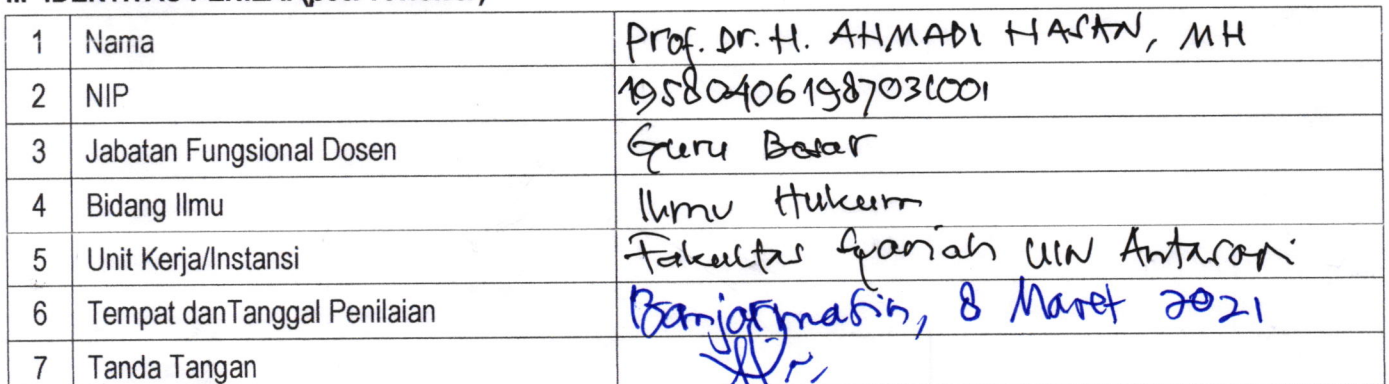 1 Nama Prof. Dr. H. AHMADI HASAN, MH
2 NIP 195804061987031001
3 Jabatan Fungsional Dosen Guru Besar
4 Bidang Ilmu Ilmu Hukum
5 Unit Kerja/Instansi Fakultas Syariah UIN Antasari
6 Tempat danTanggal Penilaian Banjarmasin, 8 Maret 2021
7 Tanda Tangan